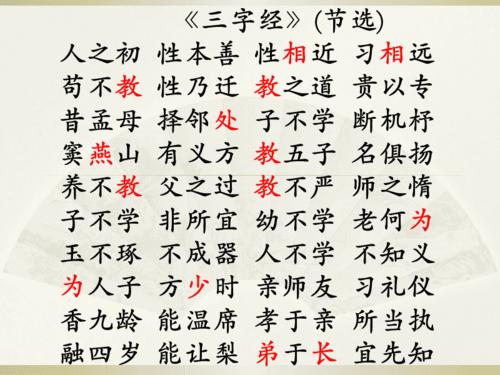 《三字经》(节选)
人之初 性本善 性相近 习相远
苟不教 性乃迁 教之道 贵以专
昔孟母 择邻处 子不学 断机杼
窦燕山 有义方 教五子 名俱扬
养不教 父之过 教不严 师之惰
子不学 非所宜 幼不学 老何为
玉不琢 不成器 人不学 不知义
为人子 方少时 亲师友 习礼仪
香九龄 能温席 孝于亲 所当执
融四岁 能让梨 弟于长 宜先知